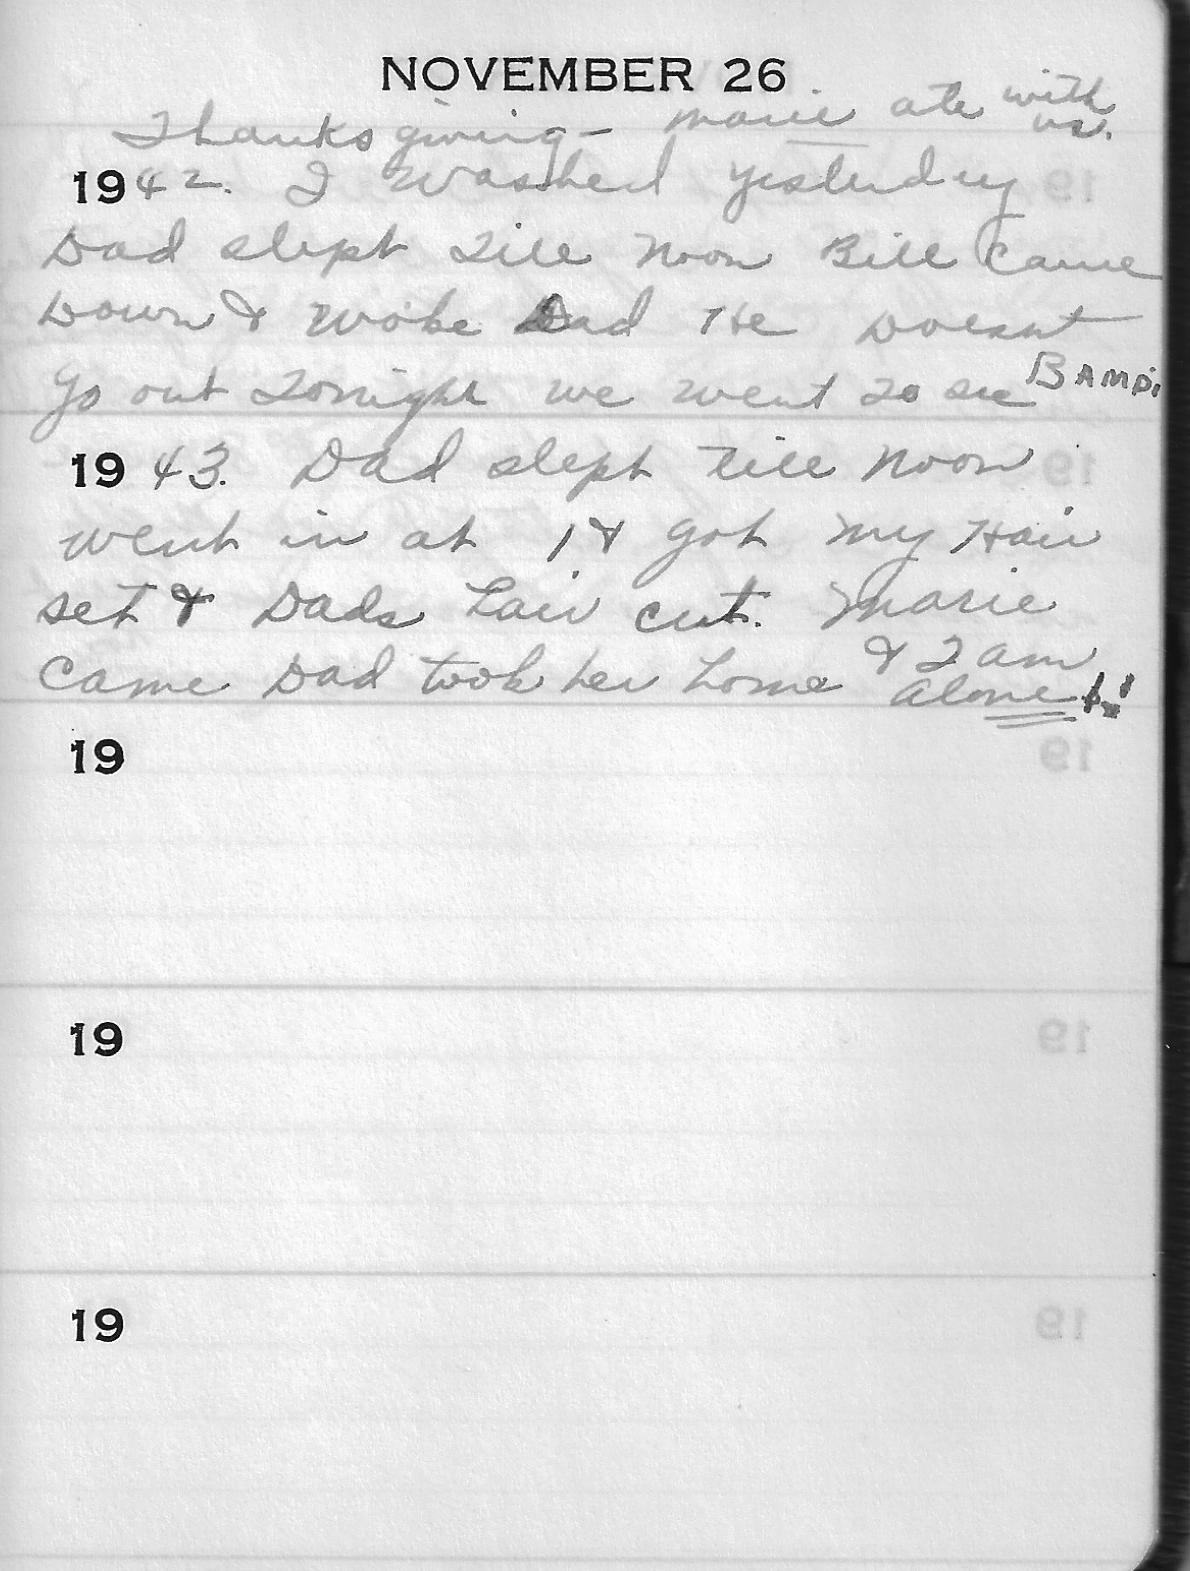 NOVEMBER 26
Thanksgiving - Marie ate with us.
1942. I Washed yesterday
Dad slept Till Noon Bill Came
Down & Woke Dad He Doesnt
go out Tonight we went To see BAMP.
1943. Dad slept till Noon
went in at 1 & got my Hair
set & Dads hair cut. Marie
came Dad took her home & I am alone!!
19
19
19